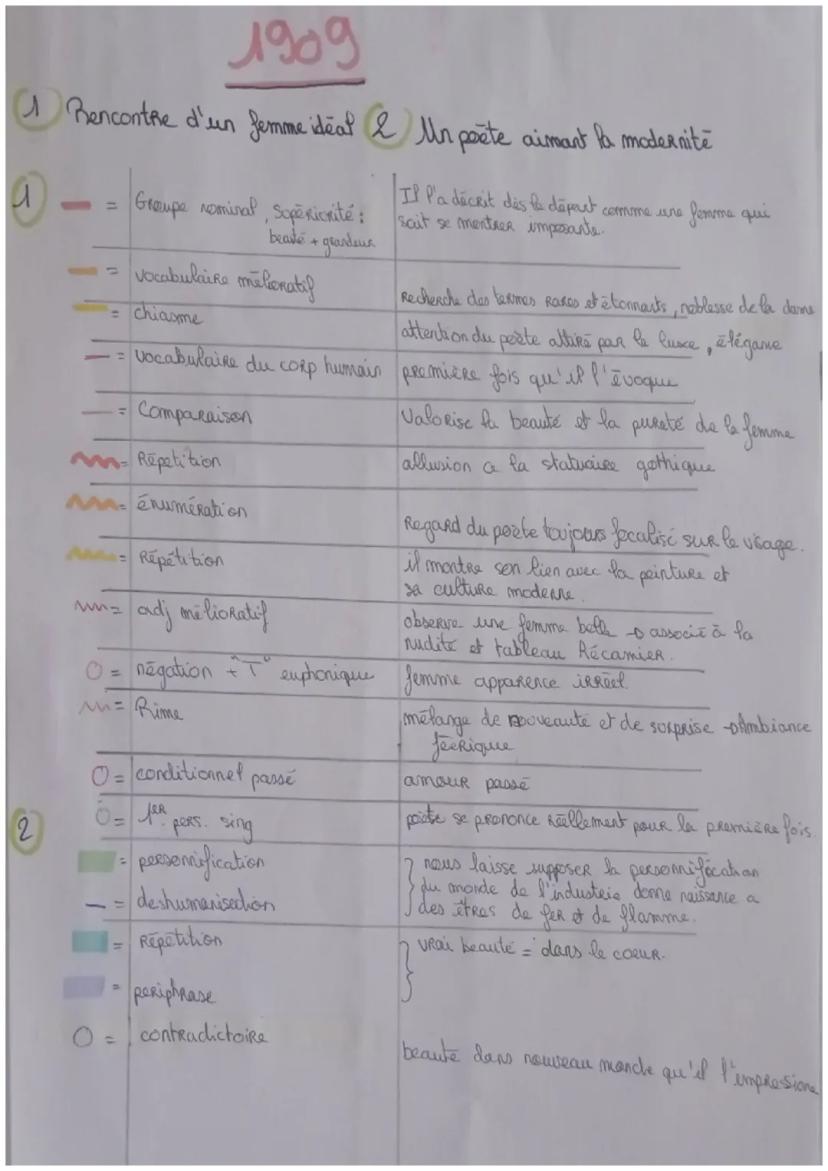 1909
1 Rencontre d'un femme idéal 2 Un poète aimant la modernité
1 = Groupe nominal, Supériorité : beauté + grandeur
Il l'a décrit dès le départ comme une femme qui
sait se montrer imposante.
= vocabulaire mélioratif
Recherche des termes rares et étonnants, noblesse de la dame
= chiasme
attention du poète attiré par le luxe, élégance
= vocabulaire du corp humain
première fois qu'il l'évoque
= Comparaison
Valorise la beauté et la pureté de la femme
= Répetition
allusion a la statuaire gothique
= énumération
Regard du poète toujours focalisé sur le visage.
= Répétition
il montre son lien avec la peinture et
sa culture moderne.
= adj mélioratif
observe une femme belle → associé à la
nudité et tableau Récamier.
= négation + "T" euphonique
femme apparence irréel.
= Rime
mélange de nouveauté et de surprise → Ambiance
féerique
= conditionnel passé
amour passé
2 = 1er pers. sing
poète se prononce réellement pour la première fois.
= personnification
nous laisse supposer la personnification
= deshumanisation
du monde de l'industrie donne naissance a
des êtres de fer et de flamme.
= Répétition
vrai beauté = dans le coeur.
= periphrase
= contradictoire
beauté dans nouveau monde qu'il l'impressione